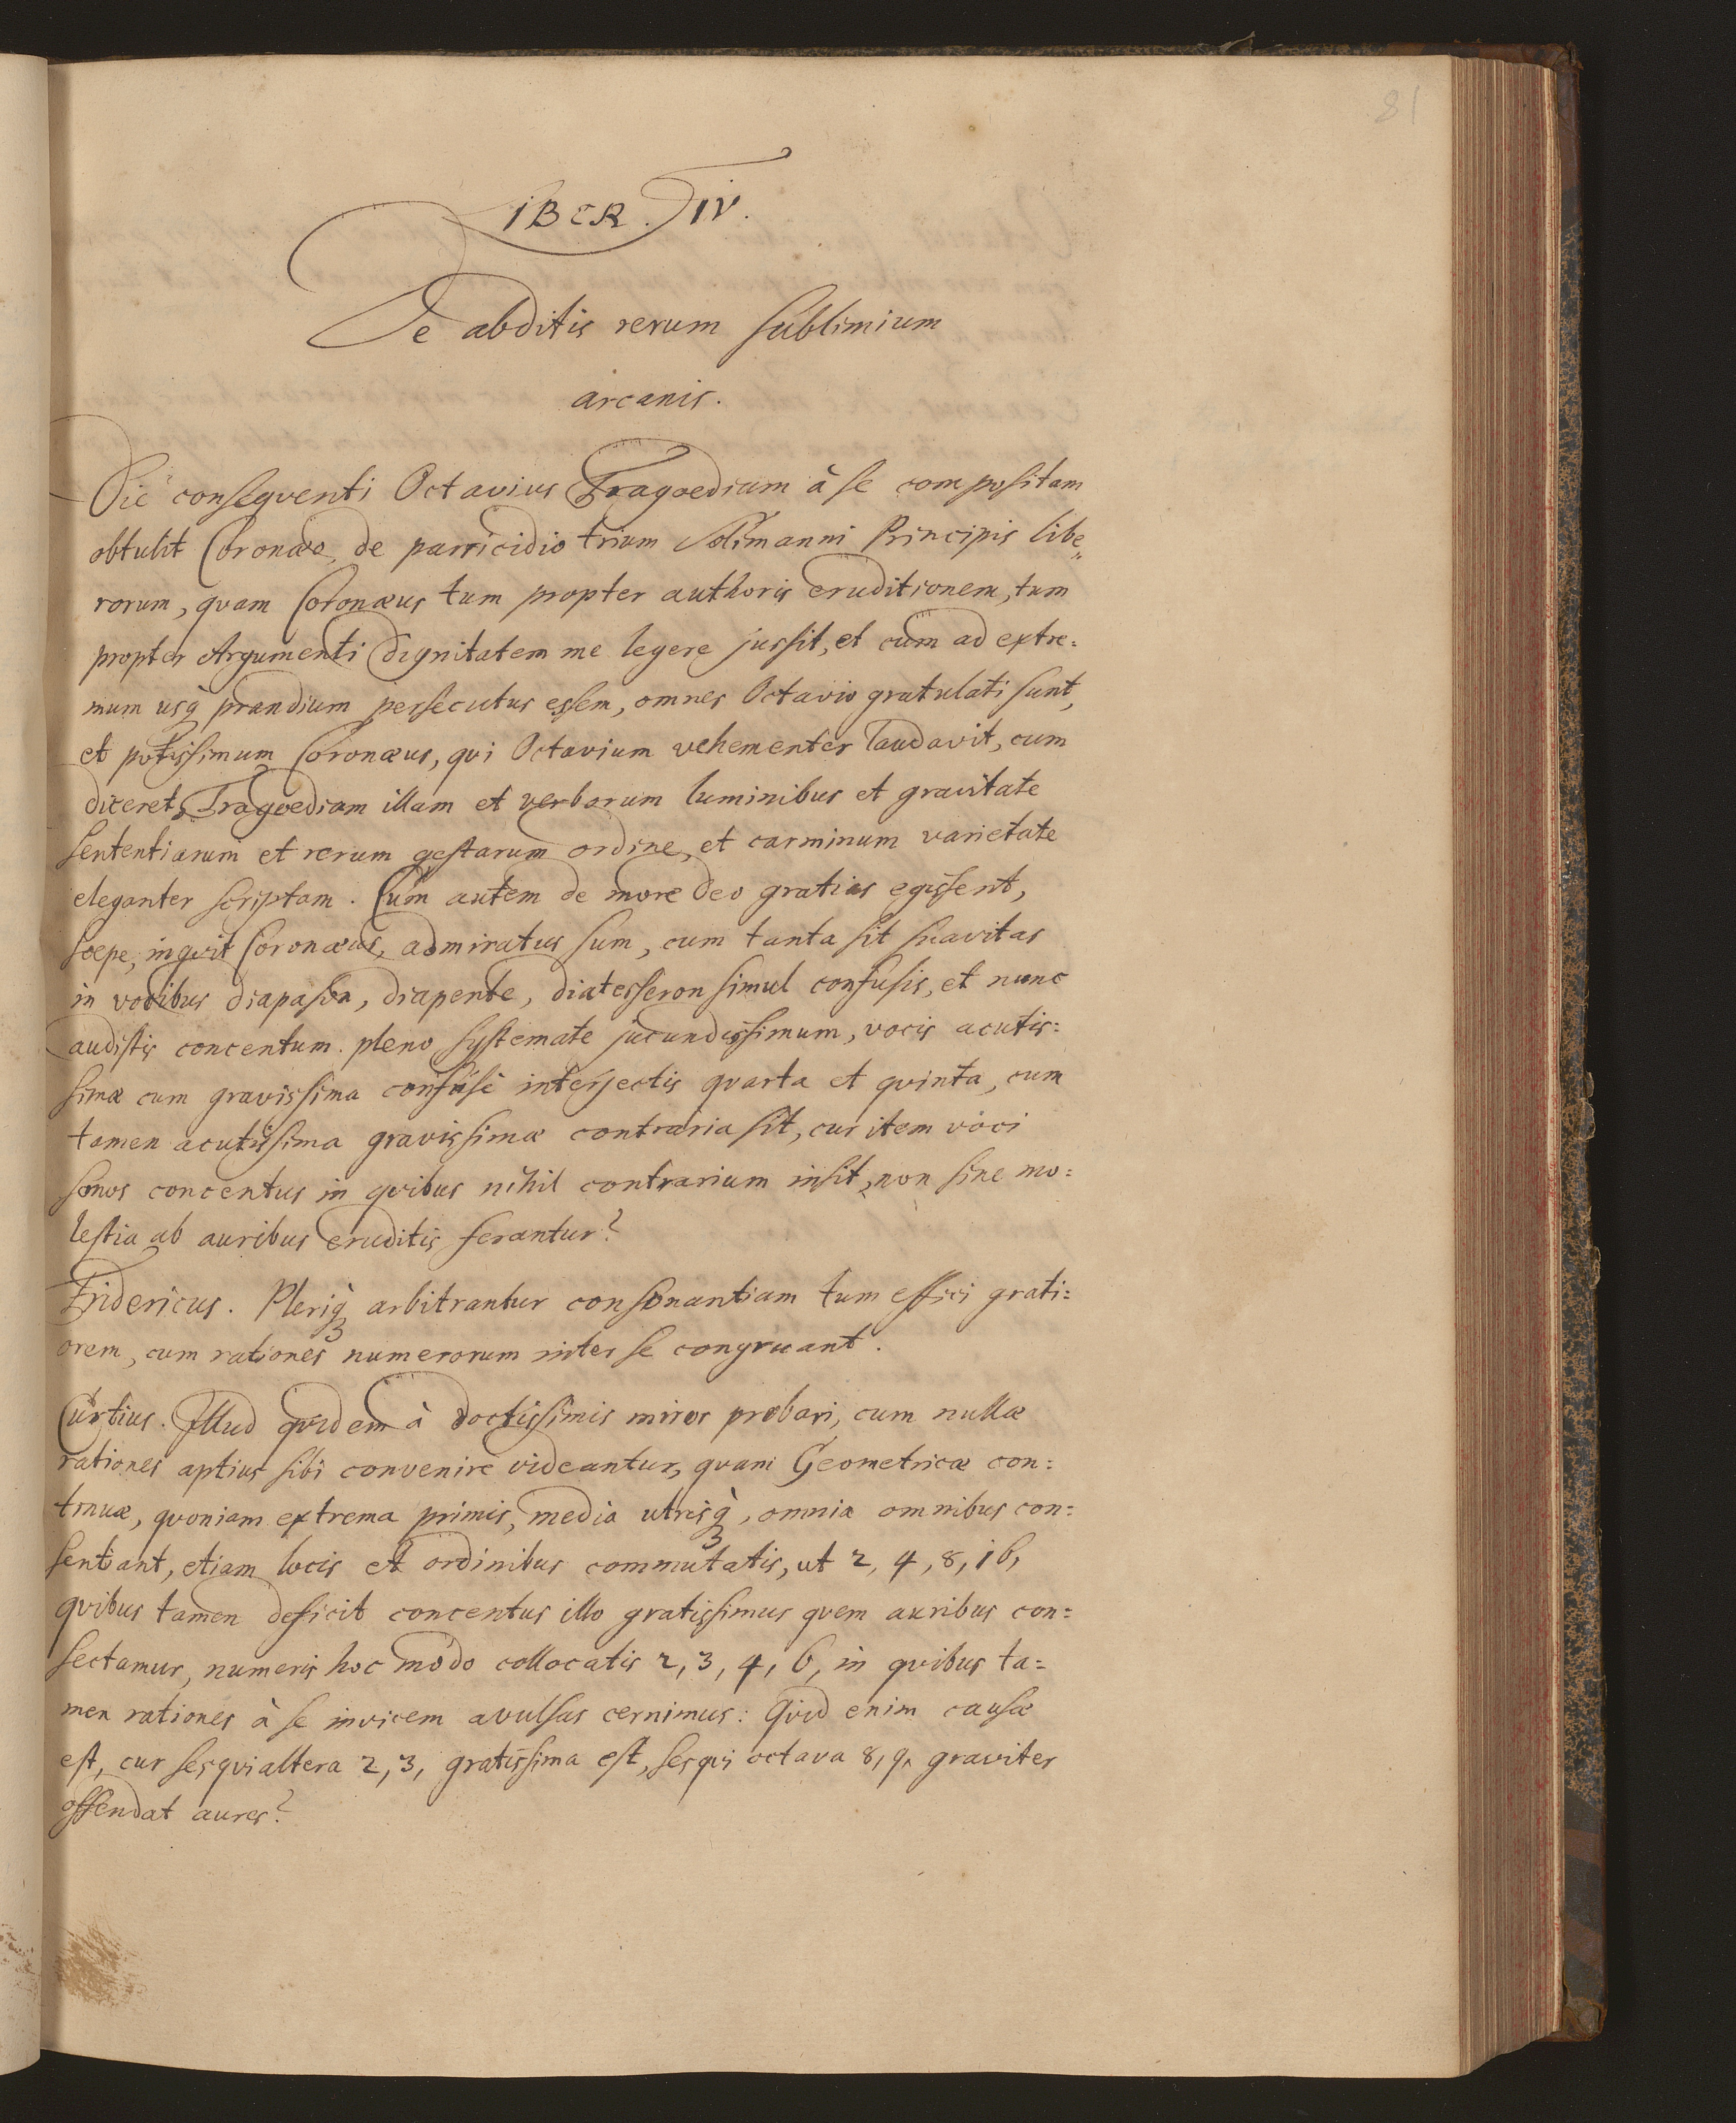 81
LIBER. IV.
De abditis rerum sublimium
arcanis.
Die conseqventi Octavius Tragoediam à se compositam
obtulit Coronæo, de parricidio trium Solimanni Principis libe„
rorum, qvam Coronæus tum propter authoris eruditionem, tum
propter Argumenti dignitatem me legere jussit, et cum ad extre=
mum usq̀ prandium persecutus essem, omnes Octavio gratulati sunt,
et potissimum Coronæus, qvi Octavium vehementer laudavit, cum
diceret, Tragoediam illam et verborum luminibus et gravitate
sententiarum et rerum gestarum ordine, et carminum varietate
eleganter scriptam. Cum autem de more Deo gratias egissent,
soepe, inqvit Coronæus, admiratus sum, cum tanta sit suavitas
in vocibus diapason, diapente, diatesseron simul confusis, et nunc
audistis concentum pleno systemate jucundissimum, vocis acutis=
simæ cum gravissima confuse interjectis qvarta et qvinta, cum
tamen acutissima gravissimæ contraria sit, cur item voci
sonos concentus in qvibus nihil contrarium insit, non sine mo=
lestia ab auribus eruditis ferantur?
Fridericus. Pleriq̀ arbitrantur consonantiam tum effici grati=
orem, cum rationes numerorum inter se congruant.
Curtius. Illud qvidem à doctissimis miror probari, cum nullæ
rationes aptius sibi convenire videantur, qvam Geometricæ con=
tinuæ, qvoniam extrema primis, media utrisq̀, omnia omnibus con=
sentiant, etiam locis et ordinibus commutatis, ut 2, 4, 8, 16,
qvibus tamen deficit concentus illo gratissimus qvem auribus con=
sectamur, numeris hoc modo collocatis 2, 3, 4, 6, in qvibus ta=
men rationes à se invicem avulsas cernimus: Qvid enim causæ
est, cur sesqvialtera 2, 3, gratissima est, sesqvi octava 8, 9, graviter
offendat aures?